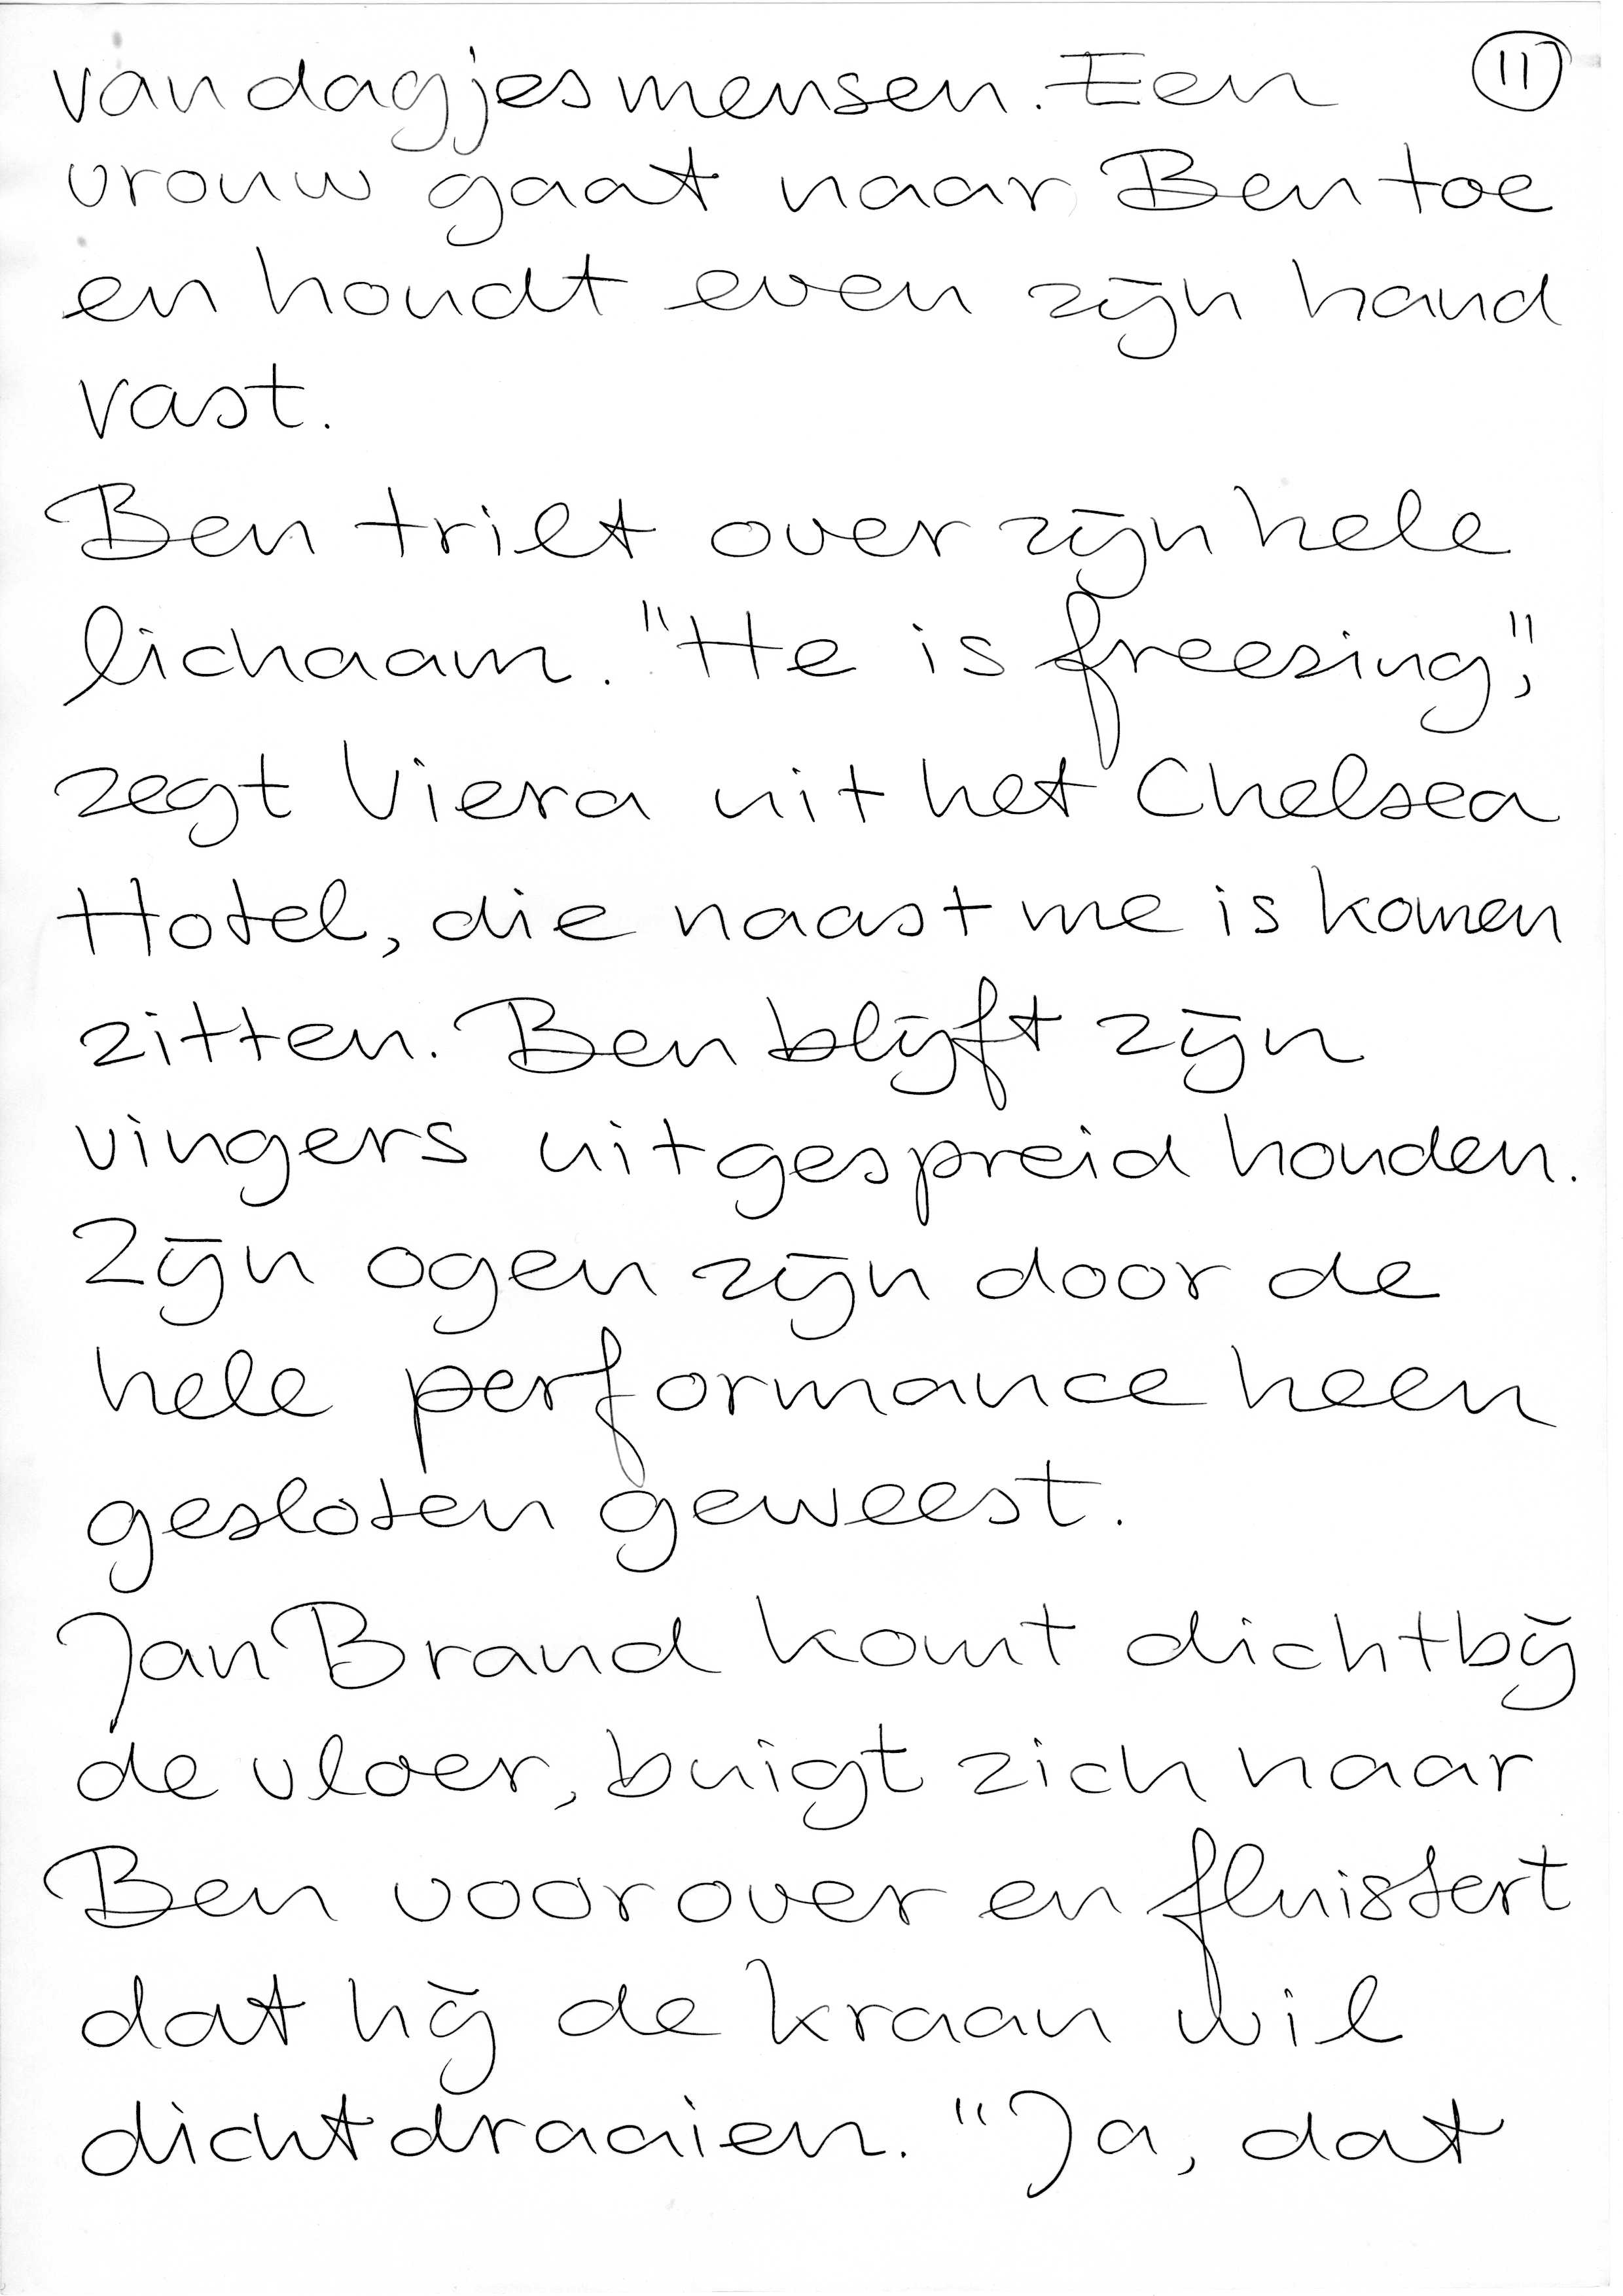 van dagjesmensen. Een
11
vrouw gaat naar Ben toe
en houdt even zijn hand
vast.
Ben trilt over zijn hele
lichaam. "He is freezing,"
zegt Viera uit het Chelsea
Hotel, die naast me is komen
zitten. Ben blijft zijn
vingers uitgespreid houden.
Zijn ogen zijn door de
hele performance heen
gesloten geweest.
Jan Brand komt dichtbij
de vloer, buigt zich naar
Ben voorover en fluistert
dat hij de kraan wil
dichtdraaien. "Ja, dat